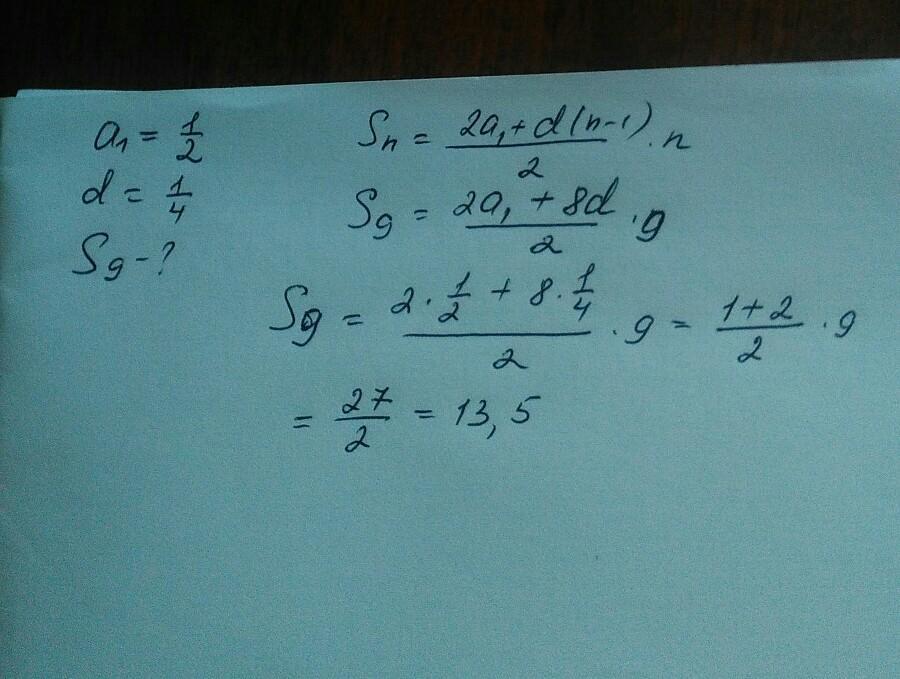 a₁ = 1/2
d = 1/4
S₉ - ?
Sₙ = (2a₁ + d(n-1))/2 · n
S₉ = (2a₁ + 8d)/2 · 9
S₉ = (2 · 1/2 + 8 · 1/4)/2 · 9 = (1+2)/2 · 9
= 27/2 = 13,5